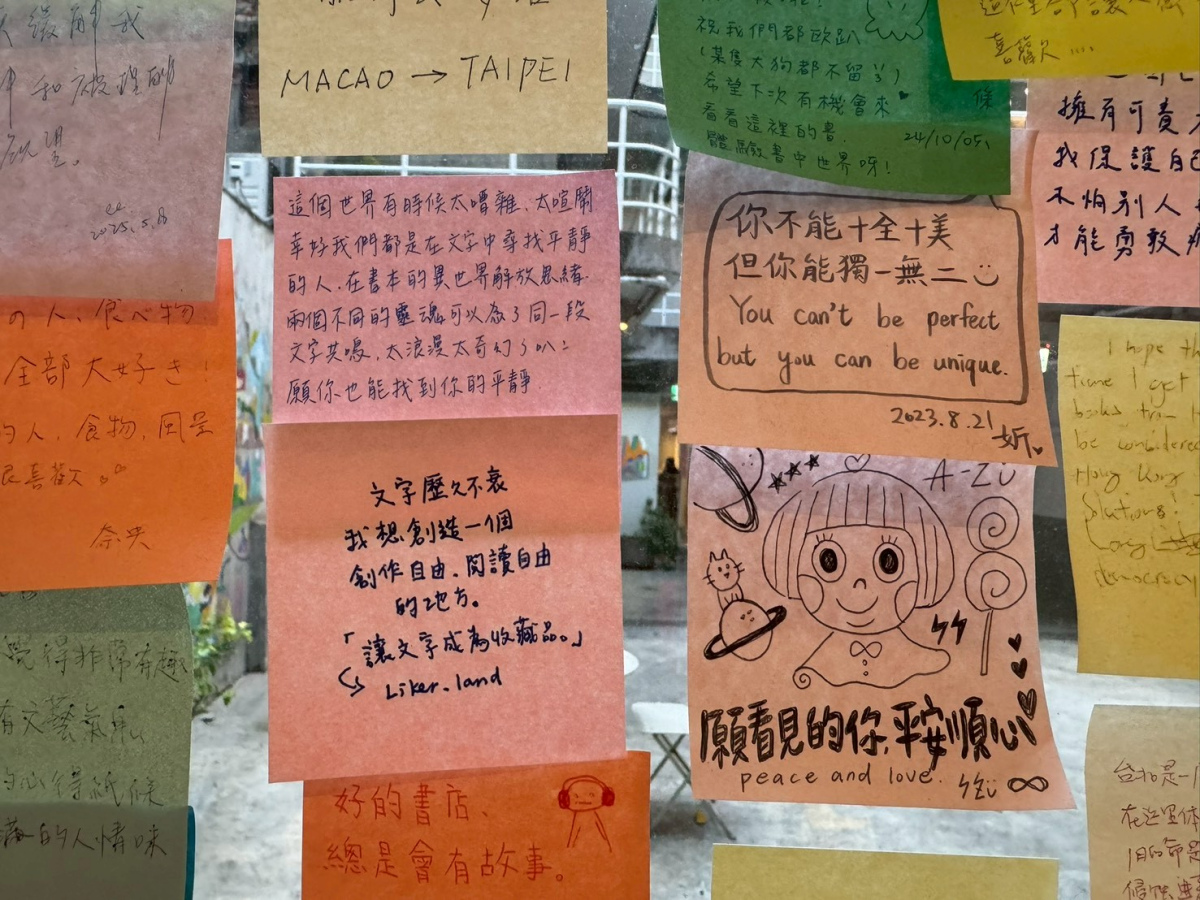 和被理解
2025.5.8
の人、食べ物
全部大好き!
的人、食物、風景
很喜歡。
奈央
覺得非常有趣
有文藝氣息
的心得紙條
的人情味
MACAO → TAIPEI
這個世界有時候太嘈雜、太喧鬧
幸好我們都是在文字中尋找平靜
的人.在書本的異世界解放思緒.
兩個不同的靈魂可以為了同一段
文字共鳴,太浪漫太奇幻了叭!
願你也能找到你的平靜
文字歷久不衰
我想創造一個
創作自由、閱讀自由
的地方。
「讓文字成為收藏品。」
Liker.land
好的書店、
總是會有故事。
祝我們都歐趴
(某隻大狗都不留)
希望下次有機會來
看看這裡的書.
體驗書中世界呀!
24/10/05
你不能十全十美
但你能獨一無二
You can't be perfect
but you can be unique.
2023.8.21
妡
A-Zu
願看見的你,平安順心
peace and love.
喜歡
擁有可貴
我保護自己
不怕別人
才能勇敢
I hope th
time I get
books from
be considered
Hong Kong
Solutions!
Long
democracy
台北是一
在這裡